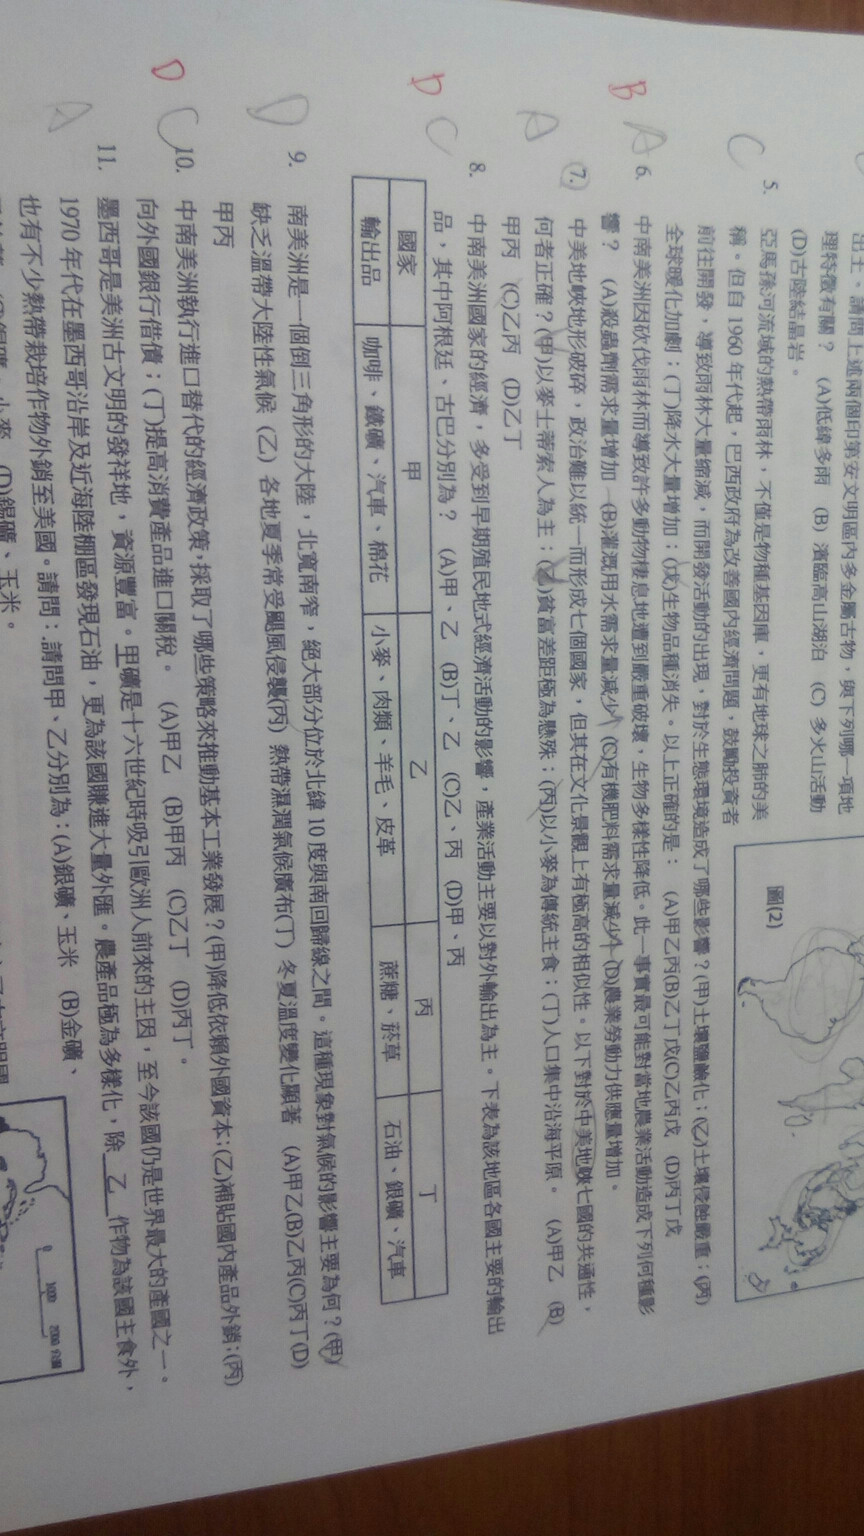 出土。請問上述兩個印第安文明區內多金屬古物,與下列哪一項地
理特徵有關? (A)低緯多雨 (B) 濱臨高山湖泊 (C) 多火山活動
(D)古陸結晶岩。
圖(2)
C
5. 亞馬孫河流域的熱帶雨林,不僅是物種基因庫,更有地球之肺的美
稱。但自 1960 年代起,巴西政府為改善國內經濟問題,鼓勵投資者
前往開發,導致雨林大量縮減,而開發活動的出現,對於生態環境造成了哪些影響?(甲)土壤鹽鹼化;(乙)土壤侵蝕嚴重;(丙)
全球暖化加劇;(丁)降水大量增加;(戊)生物品種消失。以上正確的是: (A)甲乙丙(B)乙丁戊(C)乙丙戊 (D)丙丁戊
B A
6. 中南美洲因砍伐雨林而導致許多動物棲息地遭到嚴重破壞,生物多樣性降低。此一事實最可能對當地農業活動造成下列何種影
響? (A)殺蟲劑需求量增加 (B)灌溉用水需求量減少 (C)有機肥料需求量減少 (D)農業勞動力供應量增加。
A
7. 中美地峽地形破碎,政治難以統一而形成七個國家,但其在文化景觀上有極高的相似性。以下對於中美地峽七國的共通性,
何者正確?(甲)以麥士蒂索人為主;(乙)貧富差距極為懸殊;(丙)以小麥為傳統主食;(丁)人口集中沿海平原。 (A)甲乙 (B)
甲丙 (C)乙丙 (D)乙丁
D C
8. 中南美洲國家的經濟,多受到早期殖民地式經濟活動的影響,產業活動主要以對外輸出為主。下表為該地區各國主要的輸出
品,其中阿根廷、古巴分別為? (A)甲、乙 (B)丁、乙 (C)乙、丙 (D)甲、丙
國家 甲 乙 丙 丁
輸出品 咖啡、鐵礦、汽車、棉花 小麥、肉類、羊毛、皮革 蔗糖、菸草 石油、銀礦、汽車
D
9. 南美洲是一個倒三角形的大陸,北寬南窄,絕大部分位於北緯 10 度與南回歸線之間。這種現象對氣候的影響主要為何?(甲)
缺乏溫帶大陸性氣候 (乙) 各地夏季常受颶風侵襲(丙) 熱帶濕潤氣候廣布(丁) 冬夏溫度變化顯著 (A)甲乙(B)乙丙(C)丙丁(D)
甲丙
D C
10. 中南美洲執行進口替代的經濟政策,採取了哪些策略來推動基本工業發展?(甲)降低依賴外國資本;(乙)補貼國內產品外銷;(丙)
向外國銀行借債;(丁)提高消費產品進口關稅。 (A)甲乙 (B)甲丙 (C)乙丁 (D)丙丁。
A
11. 墨西哥是美洲古文明的發祥地,資源豐富。甲礦是十六世紀時吸引歐洲人前來的主因,至今該國仍是世界最大的產國之一。
1970 年代在墨西哥沿岸及近海陸棚區發現石油,更為該國賺進大量外匯。農產品極為多樣化,除 乙 作物為該國主食外,
也有不少熱帶栽培作物外銷至美國。請問:請問甲、乙分別為:(A)銀礦、玉米 (B)金礦、
(D)錫礦、玉米。
0 1000 2000 公里